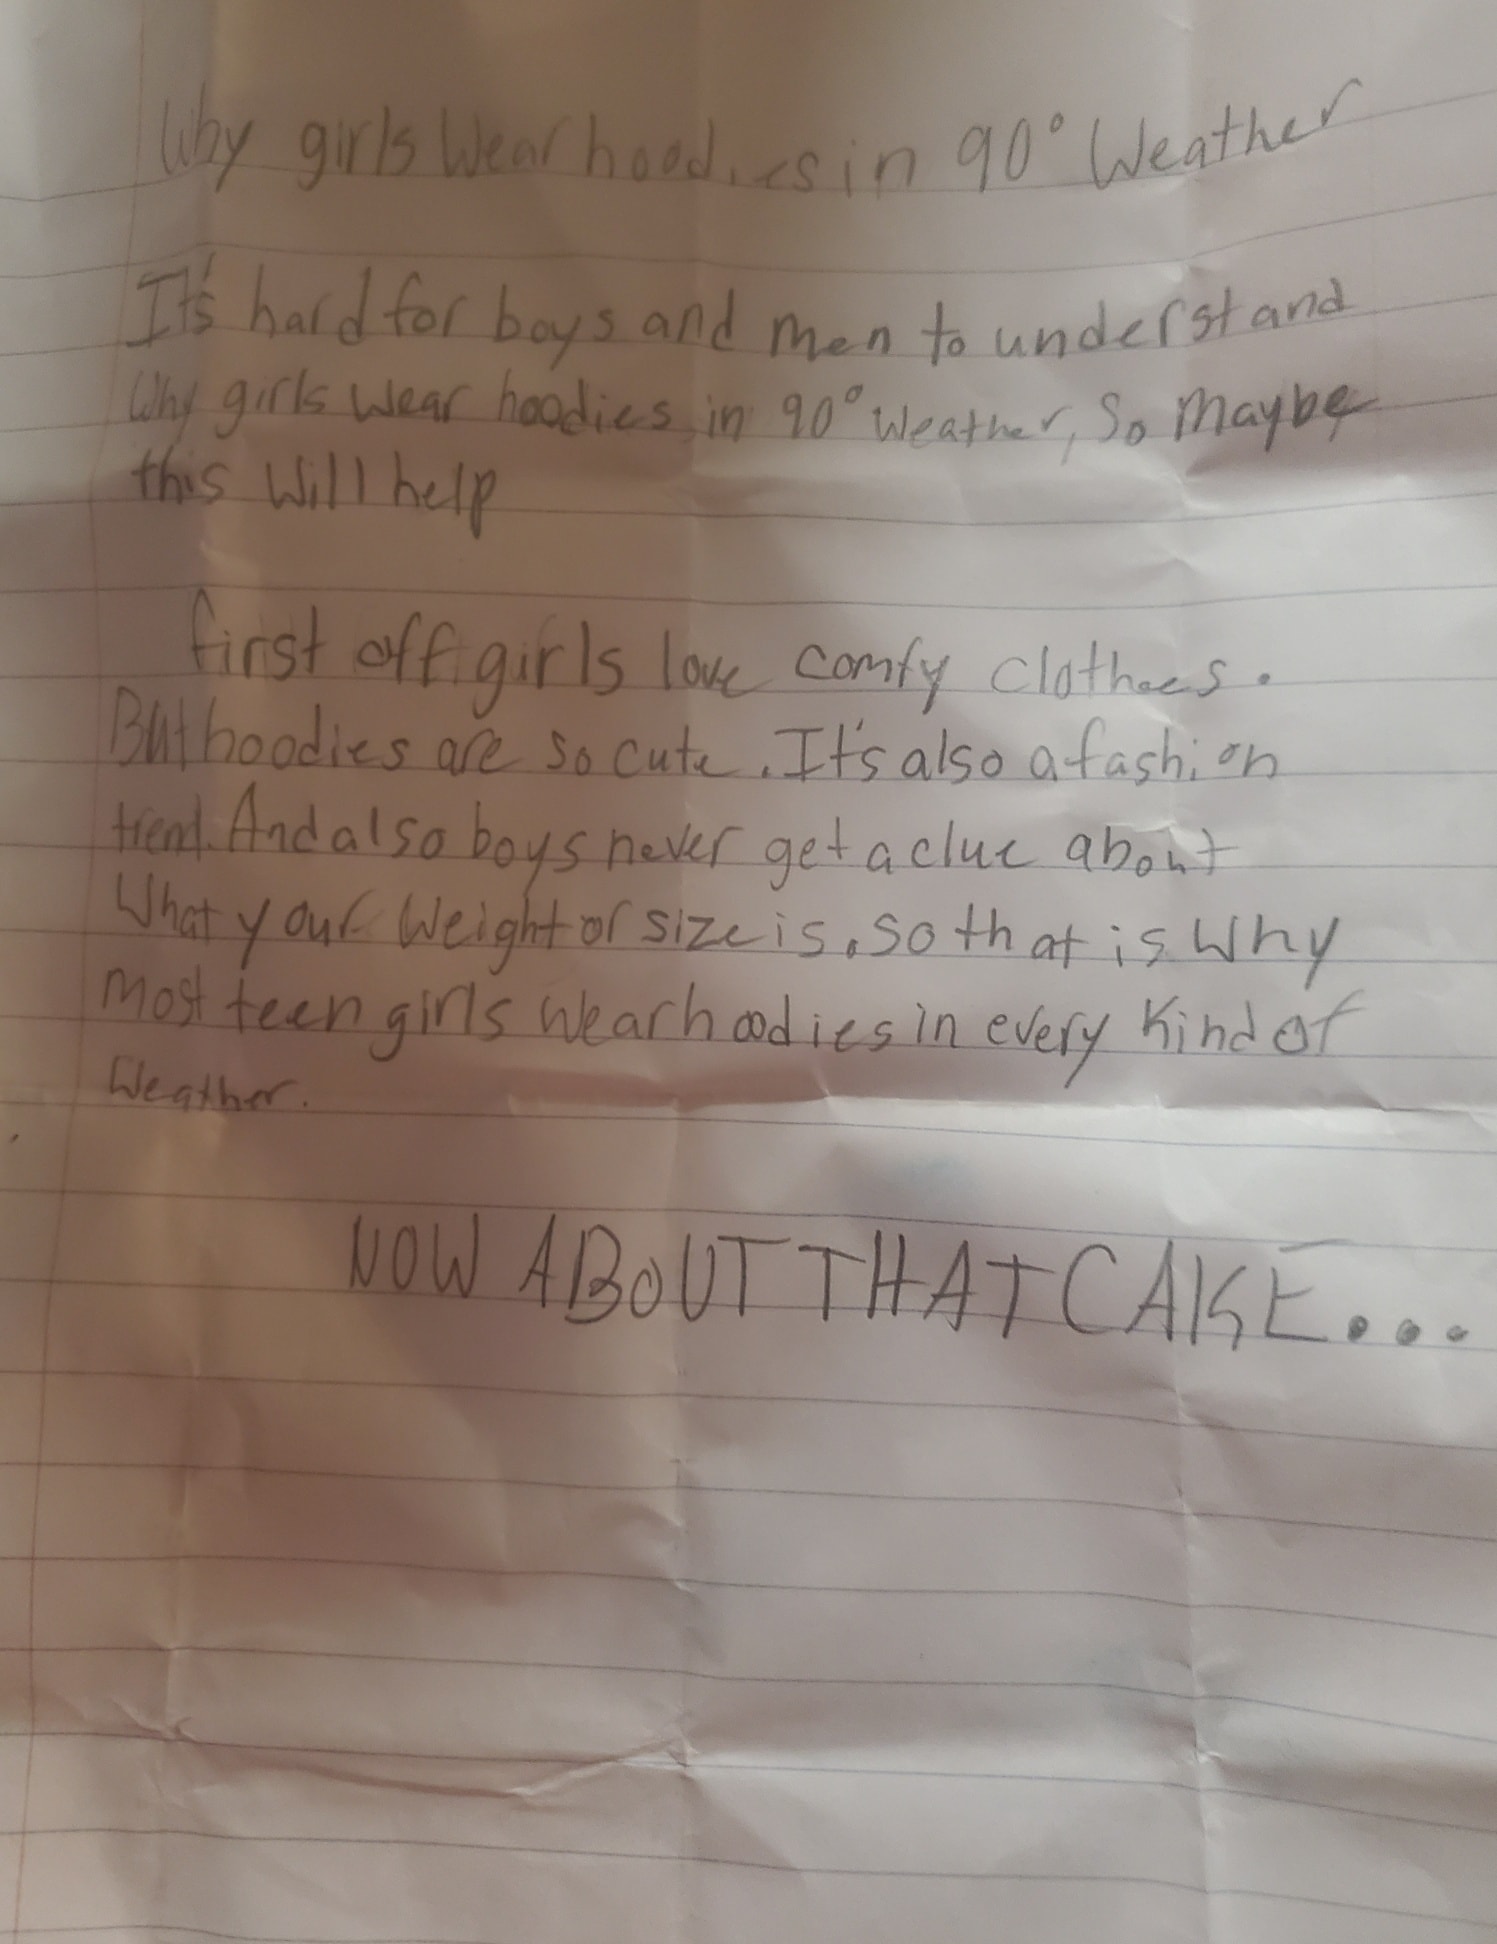 Why girls Wear hoodies in 90° Weather
It's hard for boys and men to understand
Why girls wear hoodies in 90° Weather, So Maybe
this Will help
first off girls love comfy clothees.
But hoodies are so cute. It's also a fashion
trend. And also boys never get a clue about
What your Weight or size is. So that is Why
Most teen girls Wear hoodies in every Kind of
Weather.
NOW ABOUT THAT CAKE...